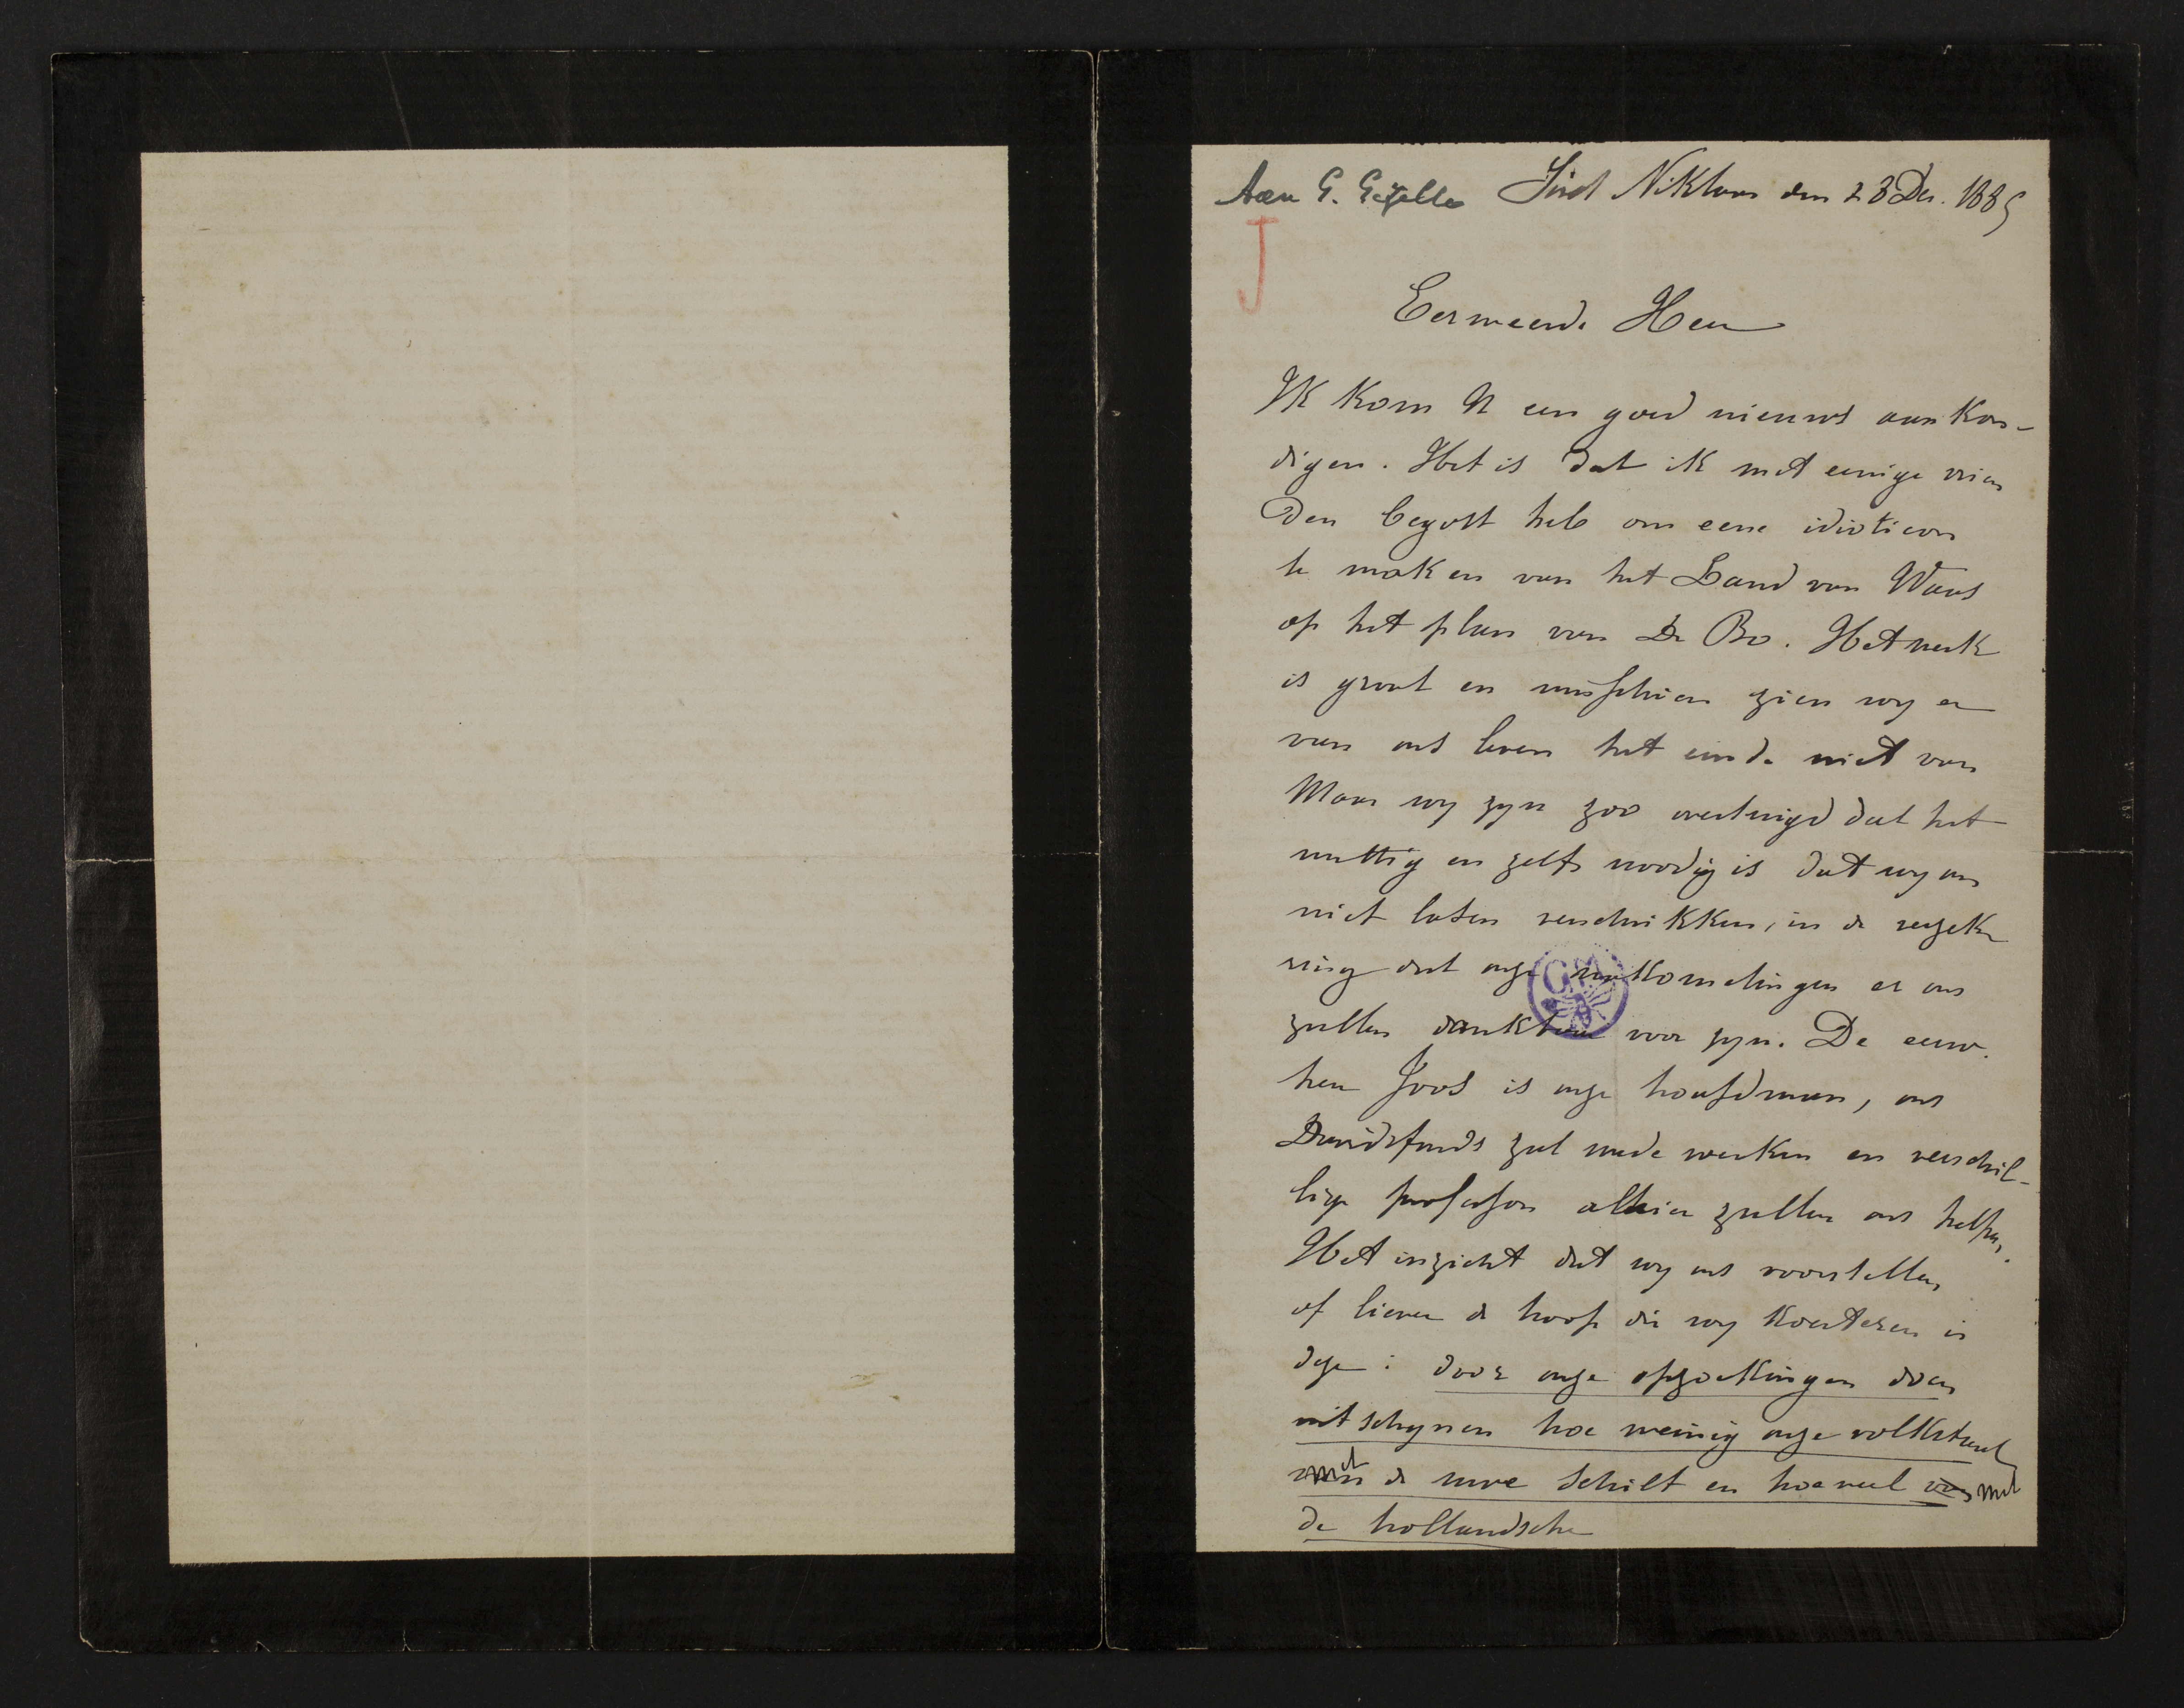 Aan G. Gezelle Sint Niklaas den 28 Dec. 1885
J
Eerweerde Heer
Ik kom U een goed nieuws aankon-
digen. Het is dat ik met eenige vrien
den begost heb om eene idioticon
te maken van het Land van Waas
op het plan van De Bo. Het werk
is groot en misschien zien wy er
van ons leven het einde niet van
Maar wy zyn zoo overtuigd dat het
nuttig en zelfs noodig is dat wy ons
niet laten verschrikken, in de verzeke
ring dat onze nakomelingen er ons
zullen dankbaar voor zyn. De eerw.
heer Joos is onze hoofdman, ons
Davidsfonds zal mede werken en verschil-
lige professors alhier zullen ons helpen.
Het inzicht dat wy ons voorstellen
of liever de hoop die wy koesteren is
deze: door onze opzoekingen doen
uitschynen hoe weinig onze volkstaal
met de uwe schilt en hoeveel met
de hollandsche